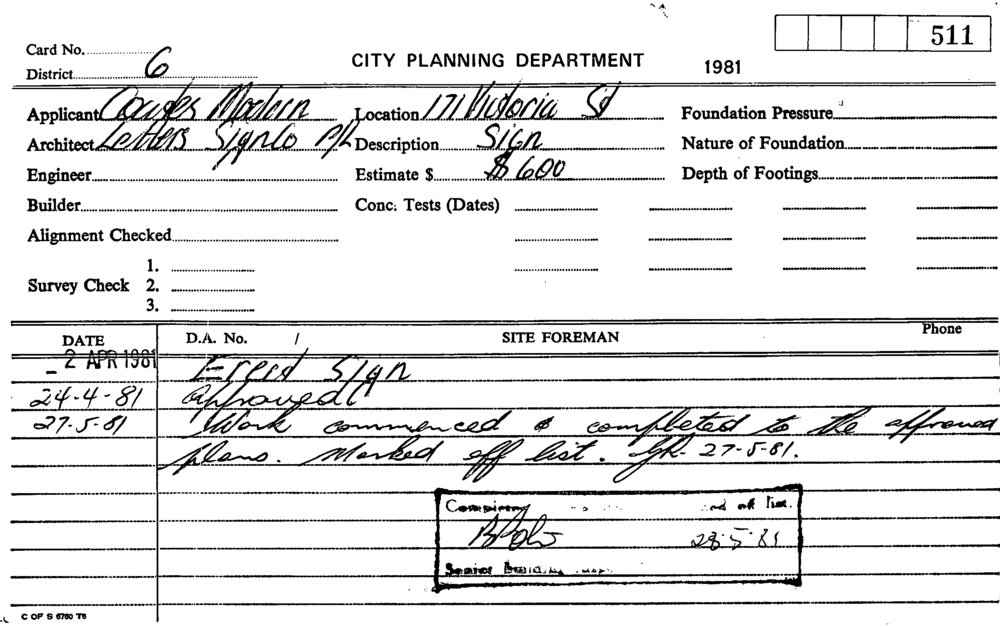 511
Card No.
District 6
CITY PLANNING DEPARTMENT
1981
Applicant Modern
Location 171 Victoria St
Foundation Pressure
Architect Letters Signco P/L
Description Sign
Nature of Foundation
Engineer
Estimate $ $600
Depth of Footings
Builder
Conc. Tests (Dates)
Alignment Checked
Survey Check
1.
2.
3.
DATE
D.A. No. /
SITE FOREMAN
Phone
2 APR 1981 Erect Sign
24-4-81 Approved
27-5-81 Work commenced & completed to the approved
plans. Marked off list. 27-5-81.
off list.
28-5-81
Senior
C OF S 6760 T6